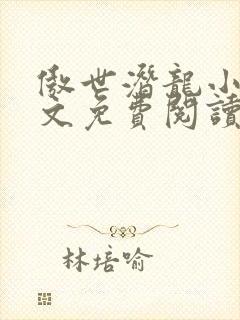 傲世潛龍小
文免費閱讀
林培喻